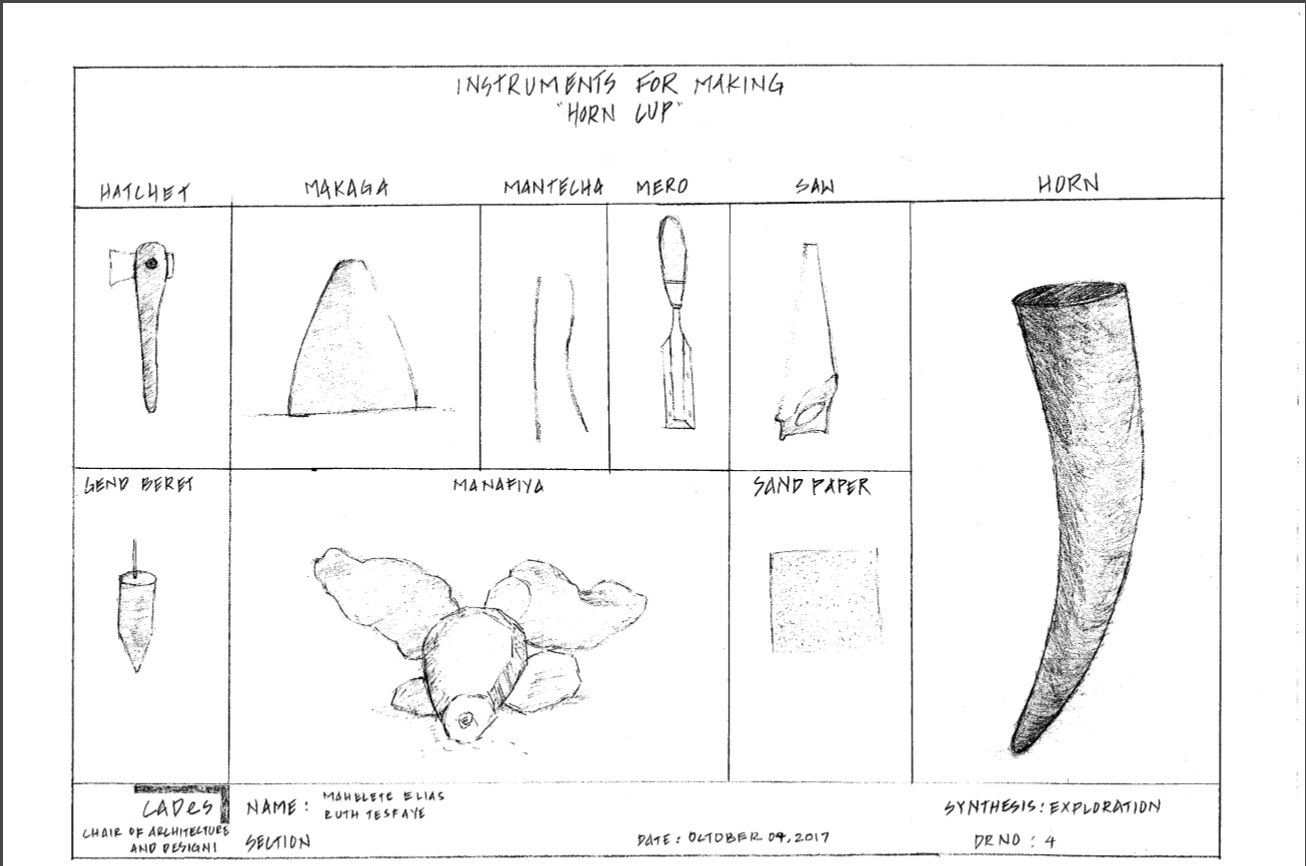 INSTRUMENTS FOR MAKING
"HORN CUP"
HATCHET
MAKAGA
MANTECHA
MERO
SAW
HORN
GEND BERET
MANAFIYA
SAND PAPER
CADes
CHAIR OF ARCHITECTURE
AND DESIGN1
NAME : MAHELETE ELIAS
RUTH TESFAYE
SECTION
DATE : OCTOBER 04, 2017
SYNTHESIS : EXPLORATION
DR NO : 4